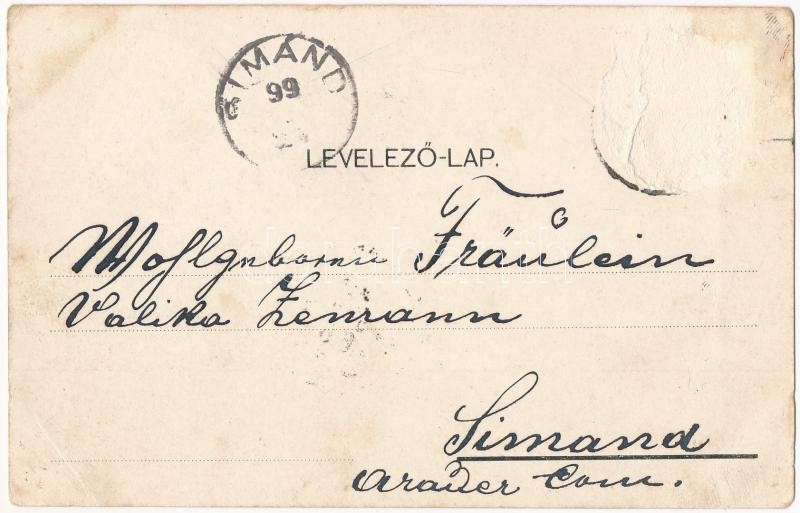 SIMÁND
99
LEVELEZŐ-LAP.
Wohlgeboren Fräulein
Valika Zenmann
Simand
Arader Com.